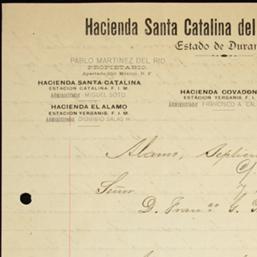 Hacienda Santa Catalina del
Estado de Duran
PABLO MARTINEZ DEL RIO
PROPIETARIO.
HACIENDA SANTA-CATALINA
ESTACION CATALINA F. I. M.
ADMINISTRADOR MIGUEL SOTO
HACIENDA EL ALAMO
ESTACION YERBANIS. F. I. M.
ADMINISTRADOR DIONISIO SALAS
HACIENDA COVADON
ESTACION YERBANIS. F. I. M.
ADMINISTRADOR FRANCISCO A.
Alamo, Septiem
Señor
D. Franco